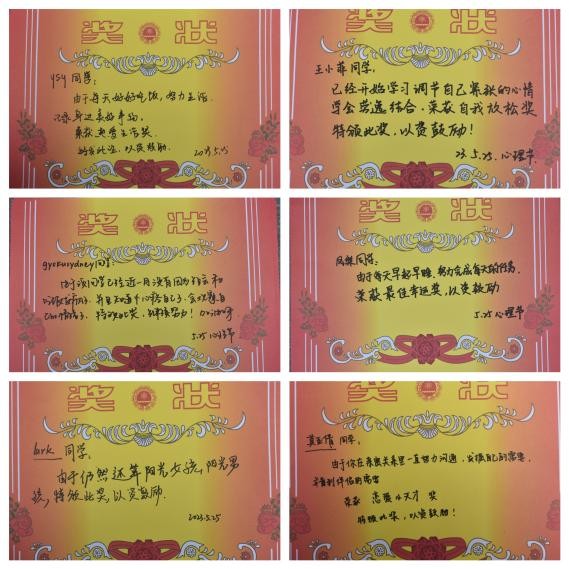 奖状
ysy 同学:
由于每天好好吃饭,努力生活,
身边美好事物,
荣获热爱生活奖
特发此奖,以资鼓励.
2023.5.25
奖状
王小菲同学,
已经开始学习调节自己寒秋的心情
学会劳逸结合,荣获自我放松奖
特颁此奖,以资鼓励!
23.5.25.心理节
奖状
gyrfurydney同学:
由于该同学已经近一月没有因为
特颁此奖,继续努力!
5.25心理节
奖状
同学:
由于每天早起早睡,努力完成每天的任务,
荣获最佳幸运奖,以资鼓励
5.25心理节
奖状
lark 同学,
由于仍然还算阳光女孩,阳光男
孩,特颁此奖,以资鼓励.
2023.5.25
奖状
莫雨倩 同学,
由于你在亲密关系里一直努力沟通,发现自己的需要
看到伴侣的需要
荣获 恋爱小天才 奖
特颁此奖,以资鼓励!